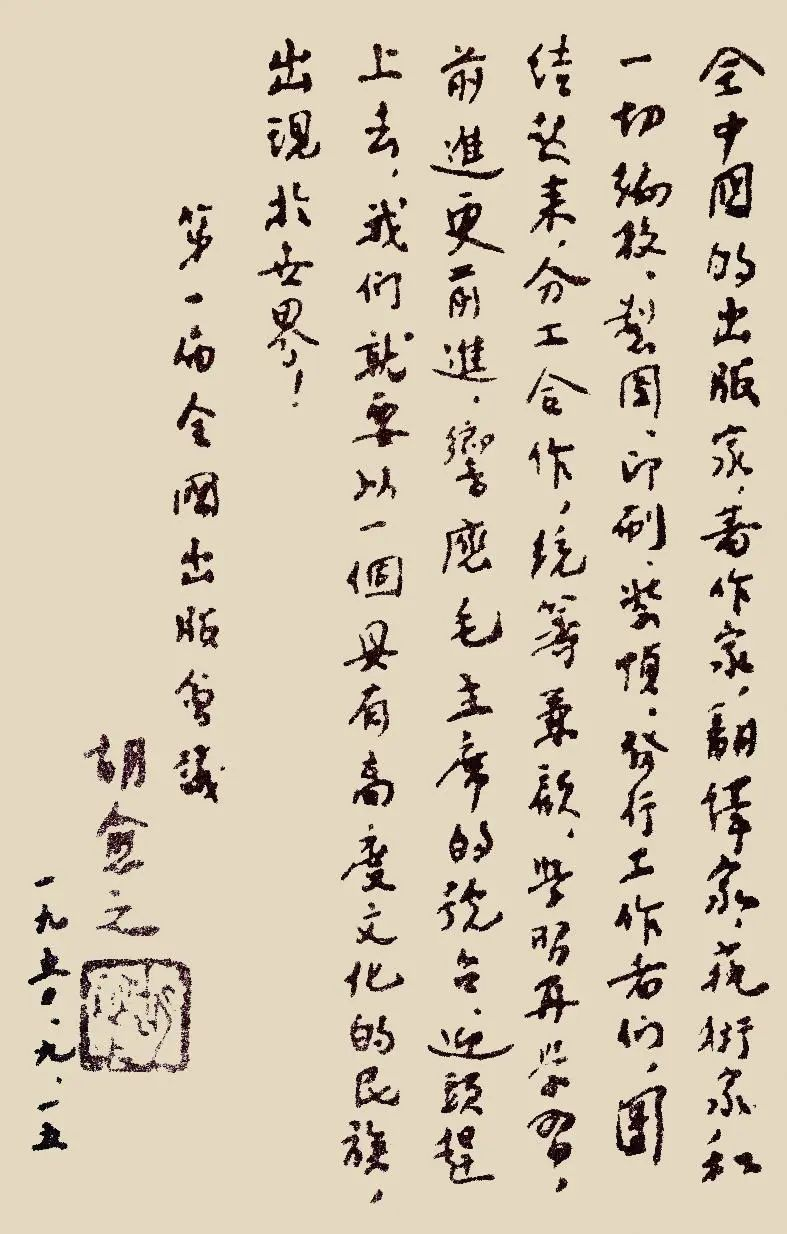 全中國的出版家，著作家，翻譯家，藝術家和
一切編校、製圖、印刷、裝幀、發行工作者們，團
结起来，分工合作，统筹兼顧，学習再学習，
前進更前進，響應毛主席的號召，迎頭趕
上去，我们就要以一個具有高度文化的民族，
出現於世界！
第一届全國出版會議
胡愈之
一九五〇、九、一五